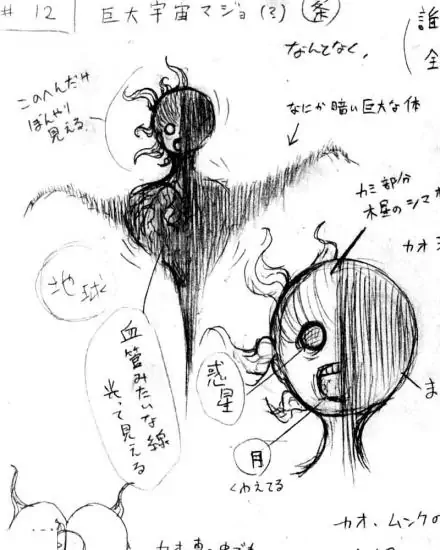 # 12
巨大宇宙マジョ(?)
案
誰
全
なんとなく、
このへんだけ
ぼんやり
見える
なにか暗い巨大な体
カミ部分
木星のシマ
カオ
地球
血管みたいな線
光って見える
惑星
月
くわえてる
ま
カオ、ムンクの